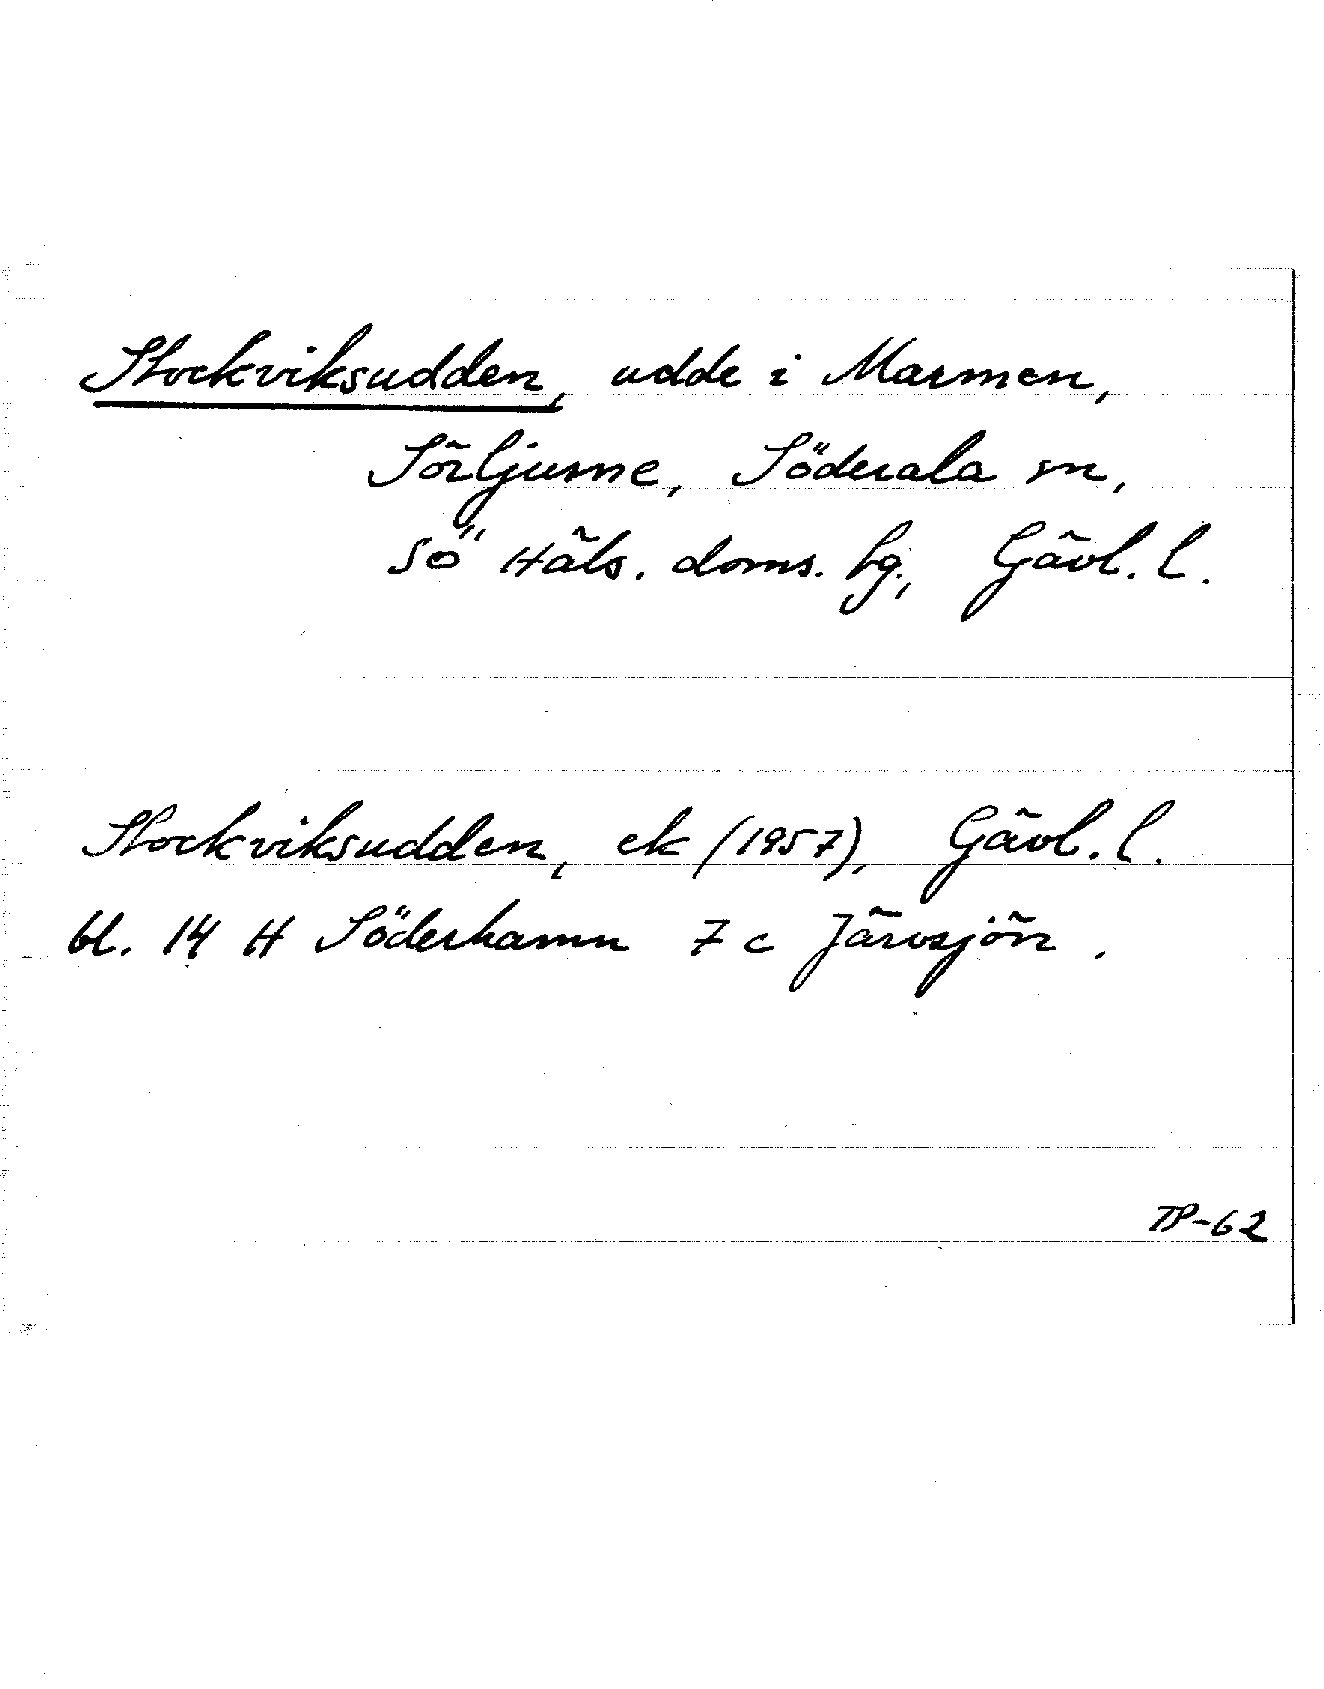 Stockviksudden, udde i Marmen,
Sörljusne, Söderala sn,
sö Häls. doms. hg., Gävl. l.
Stockviksudden, ek (1957), Gävl. l.
bl. 14 H Söderhamn 7 c Järvsjön.
TP-62